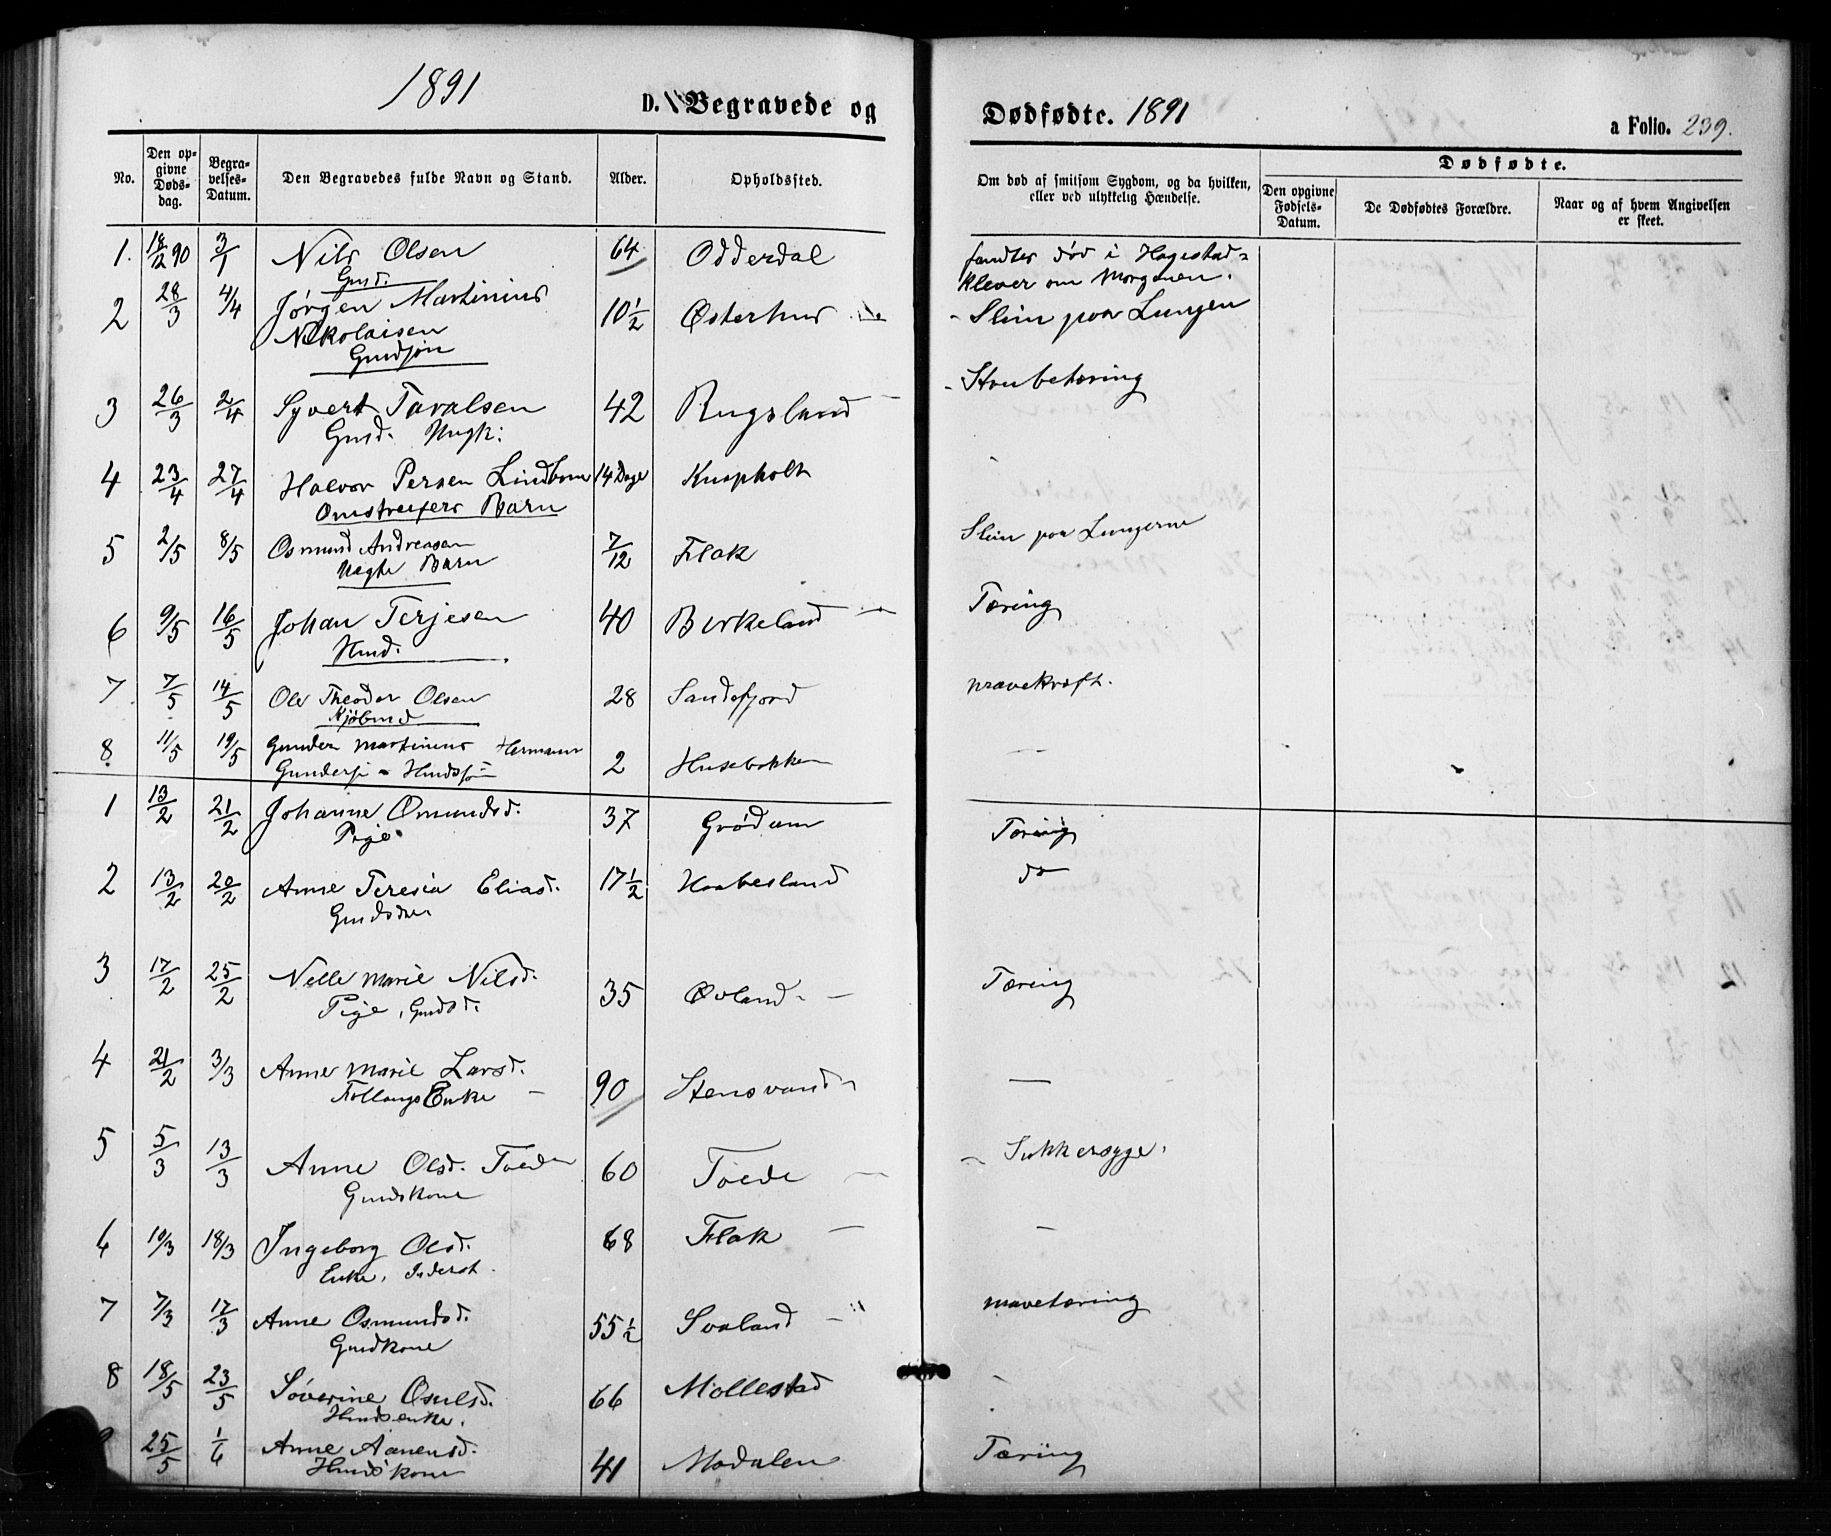 1891
D. Begravede og
Dødfødte. 1891
a Folio. 239.
No. Den opgivne Døds-dag. Begravelses-Datum. Den Begravedes fulde Navn og Stand. Alder. Opholdssted. Om død af smitsom Sygdom, og da hvilken, eller ved ulykkelig Hændelse. Dødfødte. Den opgivne Fødsels-Datum. De Dødfødtes Forældre. Naar og af hvem Angivelsen er skeet.
1. 18/12 90 3/1 Nils Olsen 64 Odderdal fandtes død i Hagestad-
Gmd. klever om Morgenen.
2 28/3 4/4 Jørgen Martinius 10 1/2 Østerhus - Slim paa Lungen
Nikolaisen
Gmdsøn
3 26/3 2/4 Syvert Tavalsen 42 Rugsland - Strubetæring
Gmd. Ungk:
4 23/4 27/4 Halvor Persen Lindbom 14 Dage Knapholt
Omstreifers Barn
5 2/5 8/5 Osmund Andreasen 7/12 Flak Slim paa Lungerne
Uægte Barn
6 9/5 16/5 Johan Terjesen 40 Birkeland Tæring
Hmd.
7 7/5 14/5 Ole Theodor Olsen 28 Sandefjord
Kjøbmd
8 11/5 19/5 Gunder Martinius Herman 2 Husebakken —
Hmdssøn
1 13/2 21/2 Johanne Omundsd. 37 Grødum Tæring
Pige
2 13/2 20/2 Anne Teresia Eliasd. 17 1/2 Haabesland do
3 17/2 25/2 Nelle Marie Nilsd. 35 Øvland - Tæring
Pige, Gmdsd.
4 21/2 3/3 Anne Marie Larsd. 90 Stensvand —
Enke
5 5/3 13/3 Anne Olsd. Toede 60 Toede - Sukkersyge.
Gmdskone
6 10/3 18/3 Ingeborg Olsd. 68 Flak — —
Enke, Inderst.
7 7/3 17/3 Anne Osmundsd. 55 1/2 Svaland - Mavetæring
Gmdkone
8 18/5 23/5 Søverine Osulsd. 66 Mollestad
Hmdsenke.
25/5 1/6 Anne Aanensd. 41 Modalen Tæring
Hmdskone